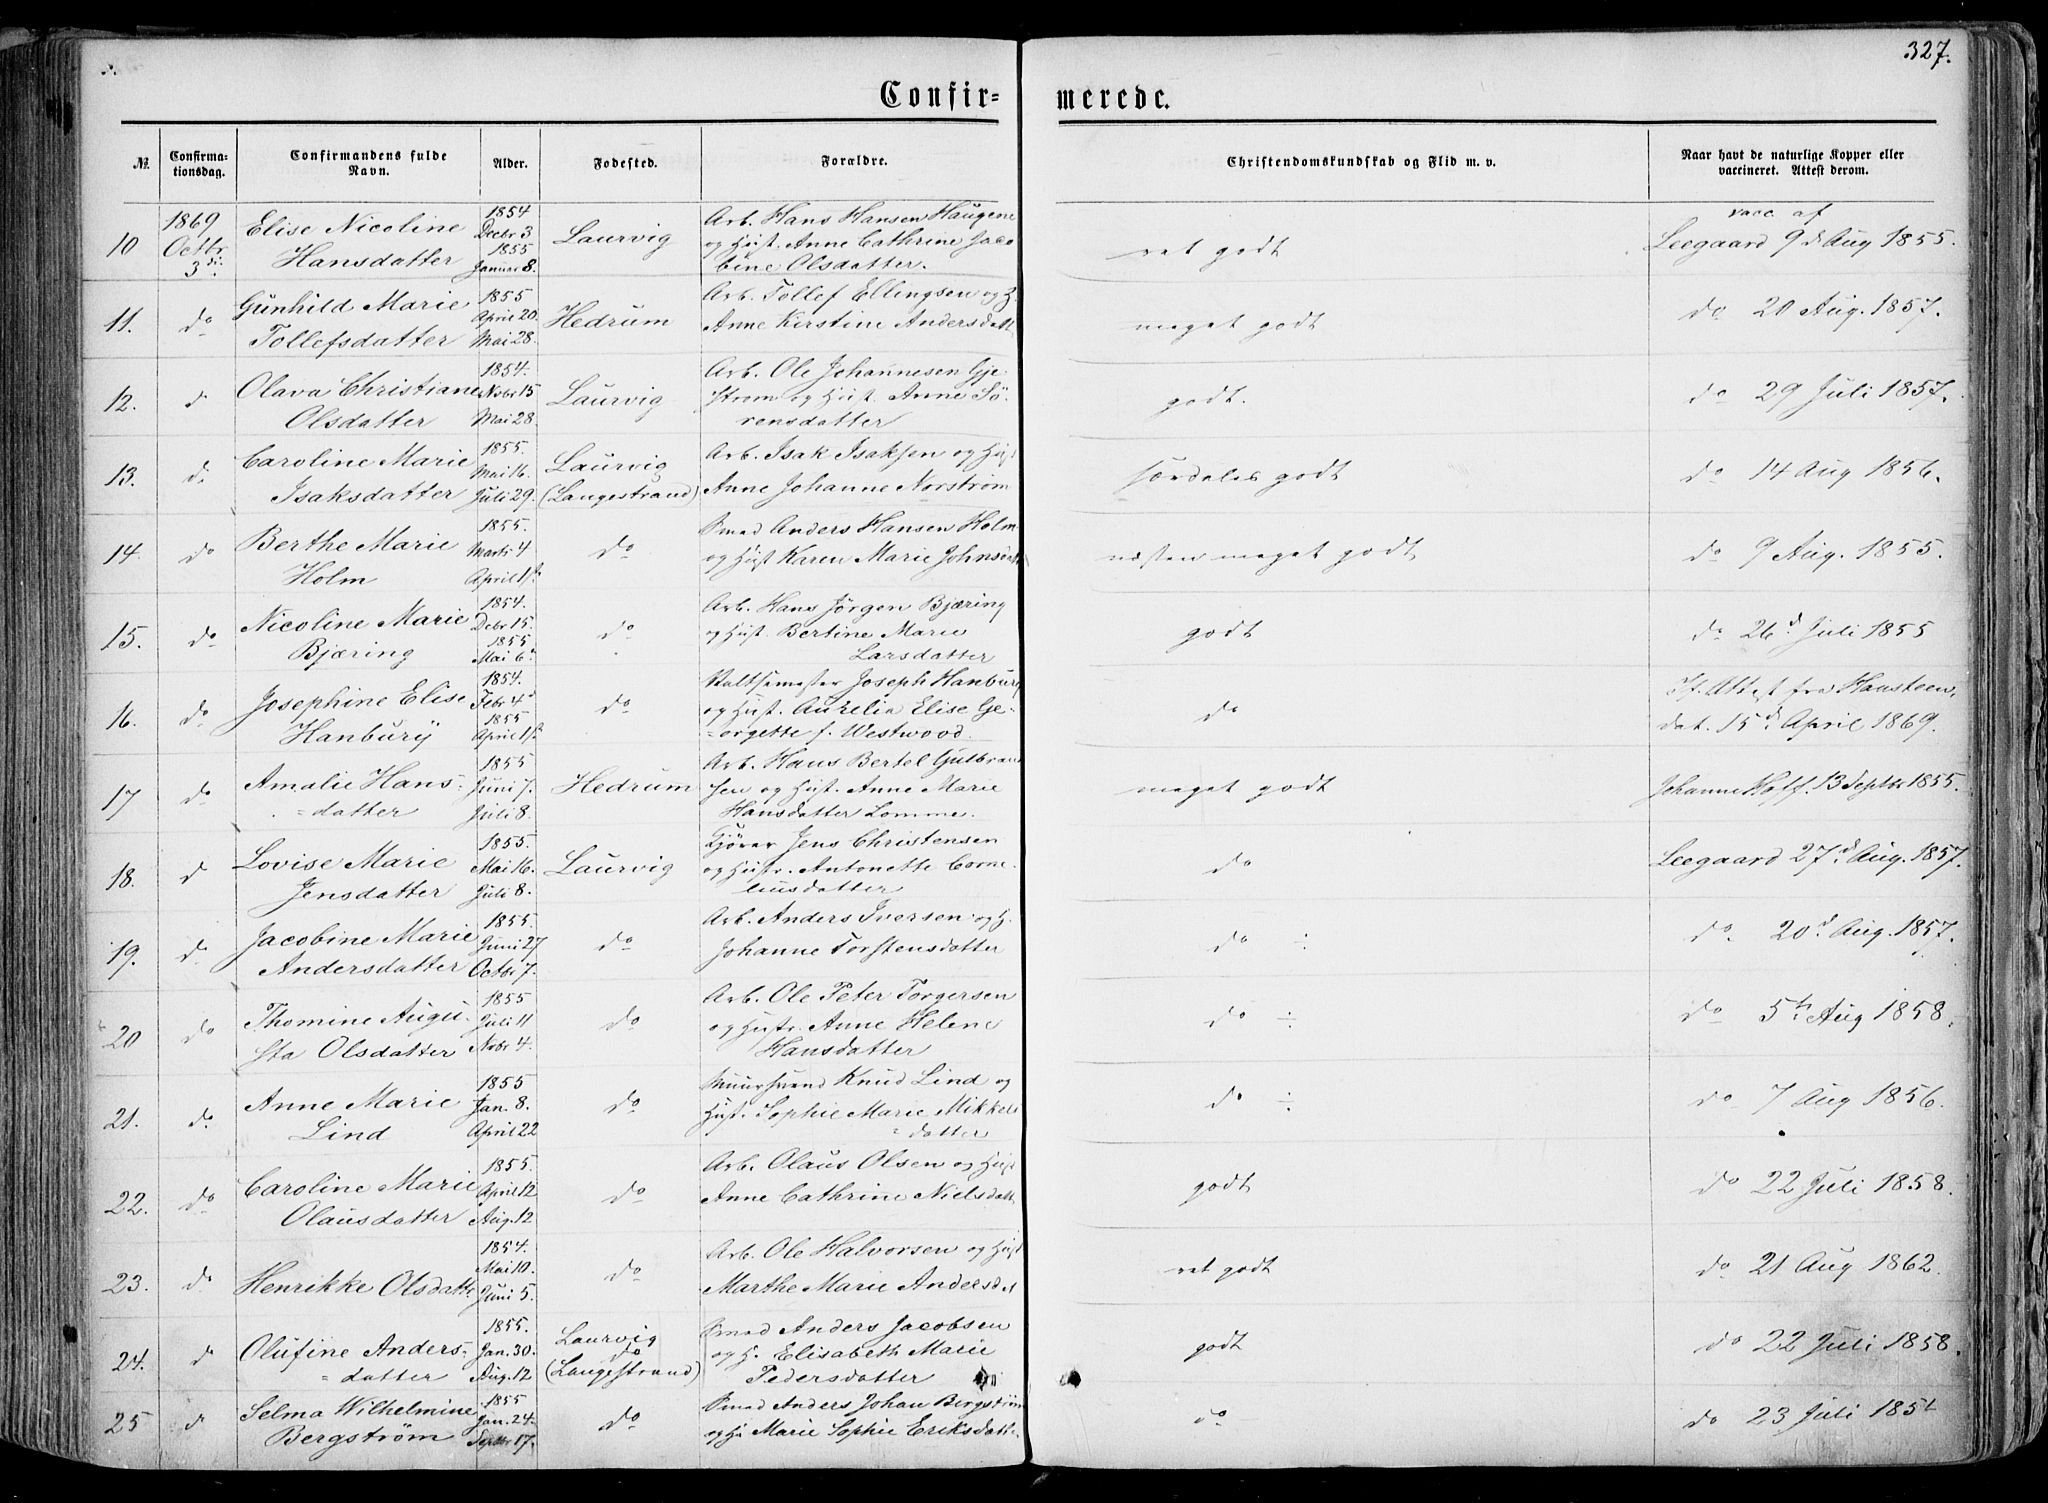 327.
Confir-
merede.
№
Confirma-
tionsdag.
Confirmandens fulde
Navn.
Alder.
Fodested.
Forældre.
Christendomskundskab og Flid m. v.
Naar havt de naturlige Kopper eller
vaccineret. Attest derom.
10
1869
Octbr.
3di.
Elise Nicoline
Hansdatter
1854
Decbr 3
1855
Januar 8.
Laurvig
Arb. Hans Hansen Haugene
og Hust. Anne Cathrine Jaco
bine Olsdatter.
ret godt
vacc. af
Leegaard 9 d. Aug 1855.
11.
do
Gunhild Marie
Tollefsdatter
1855
April 20
Mai 28.
Hedrum
Arb. Tollef Ellingsen og H.
Anne Kirstine Andersdatt
meget godt
do 20 Aug. 1857.
12.
do
Olava Christiane
Olsdatter
1854.
Novbr 15
Mai 28.
Laurvig
Arb. Ole Johannesen Gje-
strom og Hust. Anne Sö-
rensdatter
godt.
do 29 Juli 1857.
13.
do
Caroline Marie
Isaksdatter
1855.
Mai 16.
Juli 29.
Laurvig
(Langestrand)
Arb. Isak Isaksen og Hust
Anne Johanne Norstrøm
særdeles godt
do 14 Aug 1856.
14.
do
Berthe Marie
Holm
1855.
Marts 4
April 1ste
do
Smed Anders Hansen Holm
og Hust Karen Marie Johnsdatt
næsten meget godt
do 9 Aug. 1855.
15.
do
Nicoline Marie
Bjæring
1854.
Debr 15.
1855
Mai 6.
do
Arb. Hans Jørgen Bjæring
og Hust. Bertine Marie
Larsdatter
godt
do 26d. Juli 1855
16.
do
Josephine Elise
Hanbury
1854.
Febr 4d
1855
April 1ste
do
Valtsemester Joseph Hanbury
og Hust. Aurelia Elise Ge-
=orgette f. Westwood.
do
If. Attest fra Hansteen,
dat. 15d. April 1869.
17
do
Amalie Hans-
=datter
1855
Juni 7.
Juli 8.
Hedrum
Arb. Hans Bertel Gulbrand
sen og Hust. Anne Marie
Hansdatter Lomme.
meget godt
Johanne Hoff. 13 Septbr 1855.
18.
do
Lovise Marie
Jensdatter
1855.
Mai 16.
Juli 8.
Laurvig
Kjører Jens Christensen
og Hustr. Antonette Corne-
liusdatter
do
Leegaard 27d. Aug. 1857.
19.
do
Jacobine Marie
Andersdatter
1855.
Juni 27
Octbr 7.
do
Arb. Anders Iversen og H.
Johanne Torstensdatter
do ÷
do. 20d. Aug. 1857.
20
do
Thomine Augu-
sta Olsdatter
1855
Juli 11
Novbr 4.
do
Arb. Ole Peter Torgersen
og Hustr. Anne Helene
Hansdatter
do ÷
do 5te Aug 1858.
21.
do
Anne Marie
Lind
1855
Jan. 8.
April 22
do
Muursvend Knud Lind og
Hust. Sophie Marie Mikkels
=datter
do ÷
do 7 Aug 1856.
22.
do
Caroline Marie
Olausdatter
1855.
April 12
Aug. 12
do
Arb. Olaus Olsen og Hust
Anne Cathrine Nielsdatt
godt
do 22 Juli 1858.
23.
do
Henrikke Olsdattr.
1854.
Mai 10.
Juni 5.
do
Arb. Ole Halvorsen og Hust
Marthe Marie Andersdat
ret godt
do 21 Aug 1862.
24.
do
Olufine Anders-
=datter
1855.
Jan. 30.
Aug. 12
Laurvig
do
(Langestrand)
Smed Anders Jacobsen
og H. Elisabeth Marie
Pedersdatter
godt
do 22 Juli 1858.
25
do
Selma Wilhelmine
Bergstrøm
1855
Jan. 24.
Septbr 17.
do
Smed Anders Johan Bergstrøm
og Hu Marie Sophie Eriksdatte
do
do 23 Juli 1857